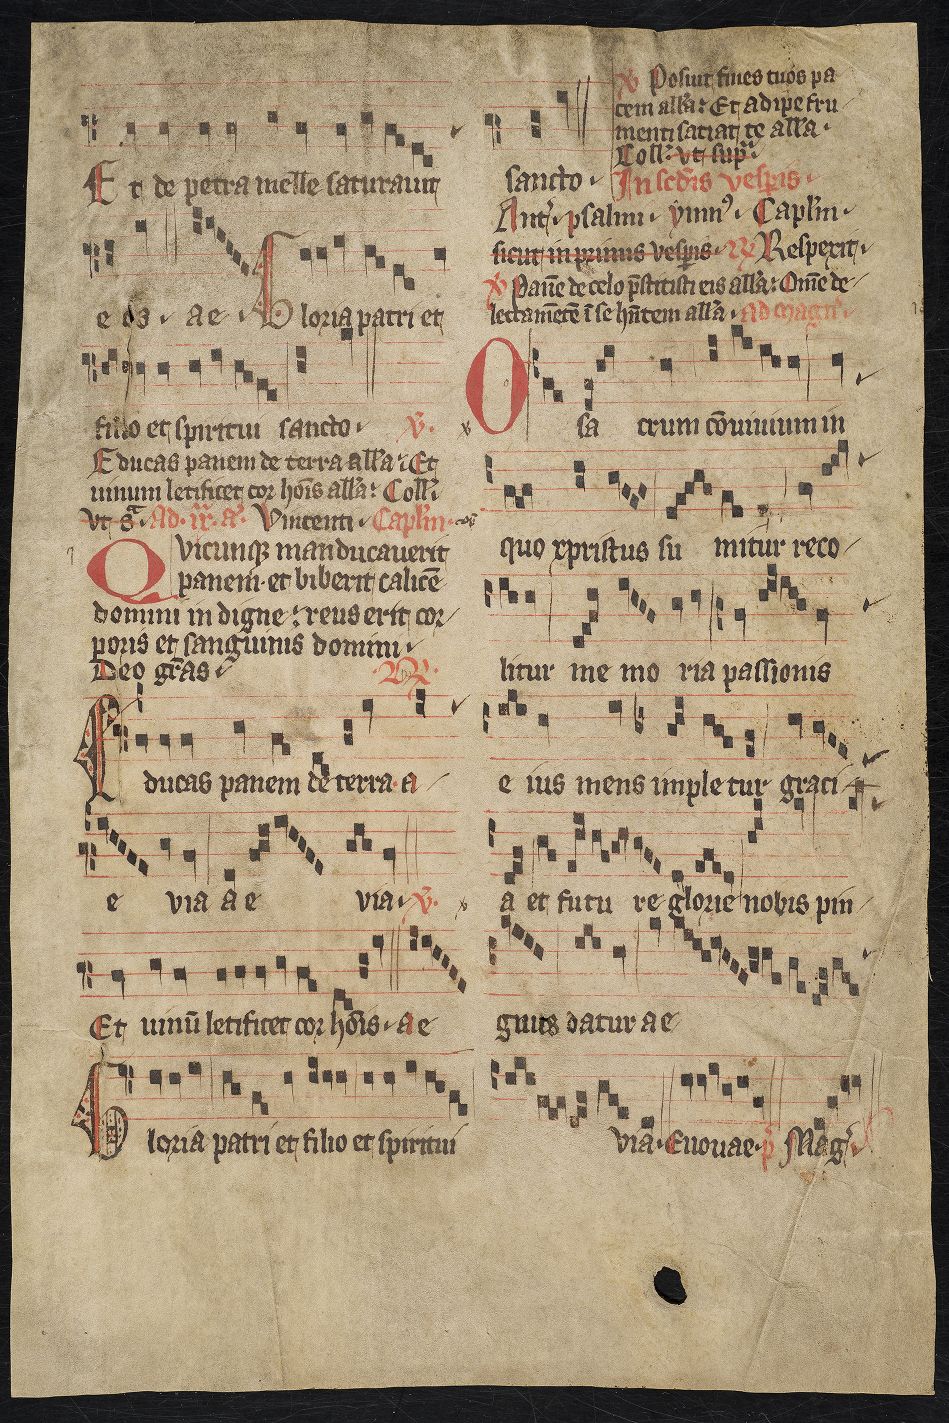 Et de petra melle saturauit
e os · ae · Gloria patri et
filio et spiritui sancto · ℣·
Educas panem de terra all'a : Et
uinum letificet cor hōis all'a : Coll'
vt s͛a Ad · ix · a͛ · Vincenti · Capl'm ·
Qvicunq manducauerit
panem · et biberit calicē
domini indigne : reus erit cor
poris et sanguinis domini ·
Deo grās · ℟
Educas panem de terra · a
e via a e via · ℣·
Et uinū letificet cor hōis · a e
Gloria patri et filio et spiritui
℣ Posuit fines tuos pa
cem all'a : Et adipe fru
menti satiat te all'a ·
Coll' vt sup͛ ·
sancto · In scd'is vesp̄is ·
Ant͛ · psalmi · ymn⁹ · Capl'm ·
sicut in primis vesp̄is · ℟ Respexit ·
℣ Panē de celo p̄stitisti eis all'a : Om̄e de
lectamētē ī se hn̄tem all'a · Ad magn͛
O sa crum cōuiuium in
quo xpristus su mitur reco
litur me mo ria passionis
e ius mens imple tur graci
a et futu re glorie nobis pin
gnus datur a e
via · Euouae · p͛ Mag͛ ·